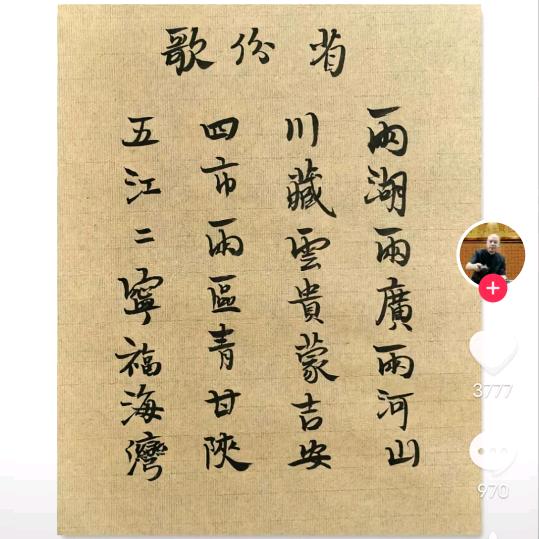 省份歌
兩湖兩廣兩河山
川藏雲貴蒙吉安
四市兩區青甘陝
五江二寧福海灣
3777
970